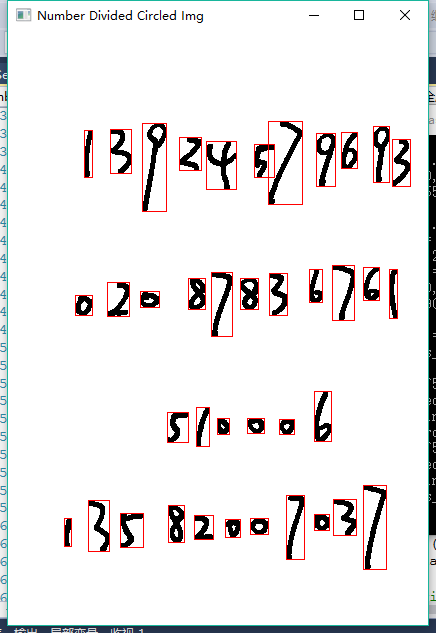 Number Divided Circled Img
1 3 9 2 4 5 7 9 6 9 3
0 2 0 8 7 8 3 6 7 6 1
5 1 0 0 0 6
1 3 5 8 2 0 0 0 7 0 3 7